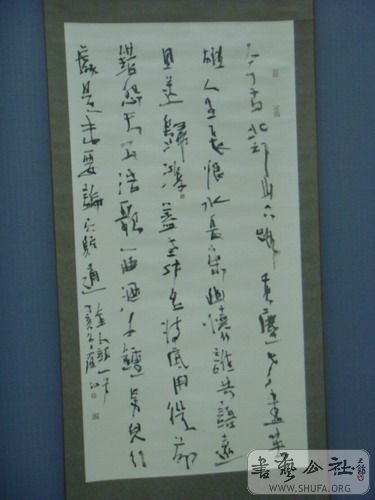 今古北邙山下路黃塵老盡英
雄人生長恨水長東幽懷誰共語遠
目送歸鴻蓋世功名將底用從前
錯怨天公浩歌一曲酒千鍾男兒行
處是未要論窮通
金人詞一首
丁亥
書藝公社
WWW.SHUFA.ORG